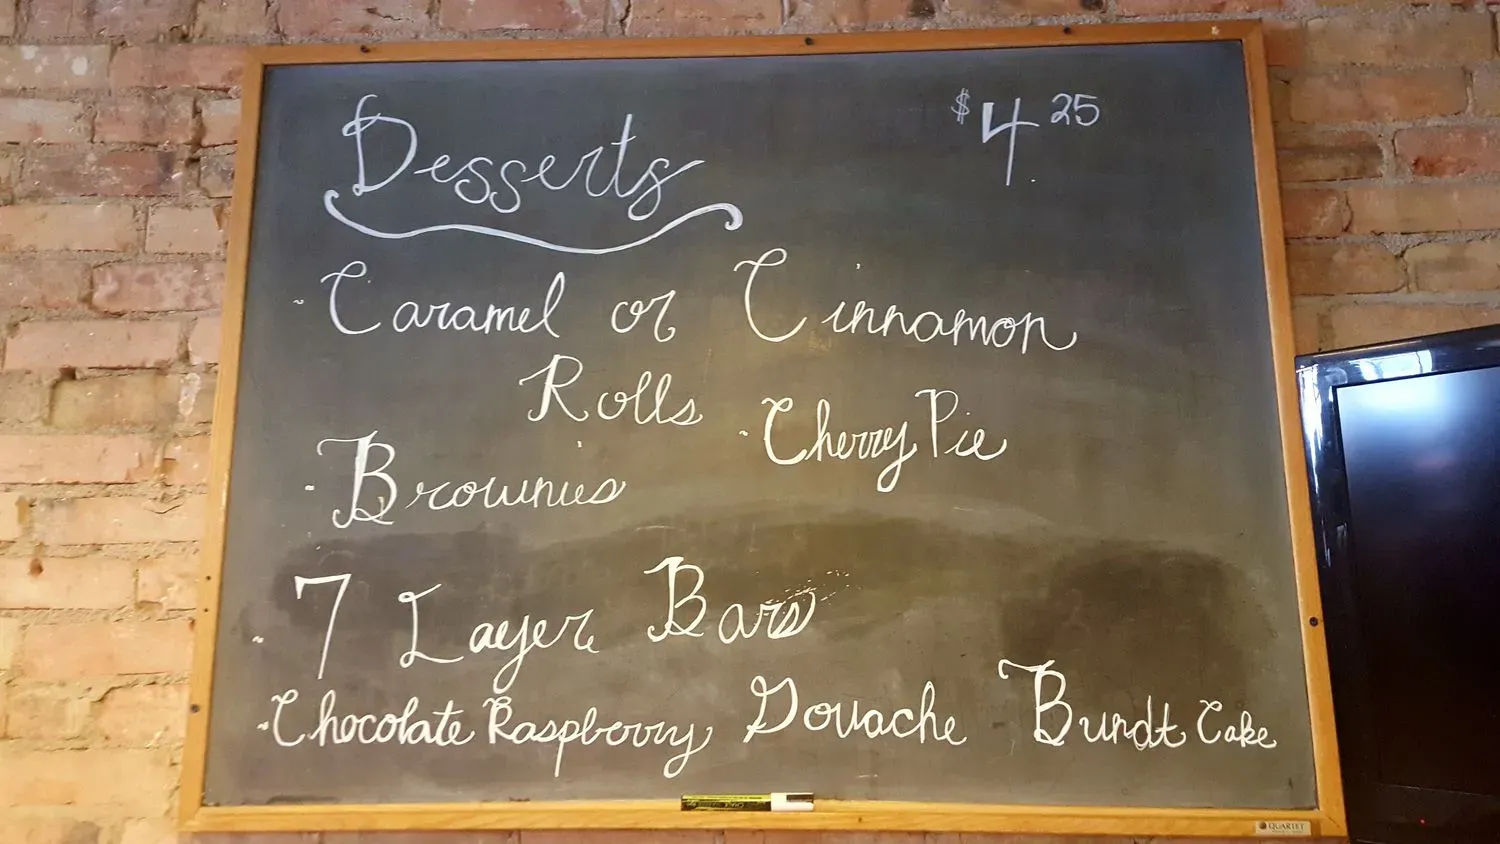 Desserts
$4.25
~ Caramel or Cinnamon
Rolls
~ Cherry Pie
- Brownies
~ 7 Layer Bars
~ Chocolate Raspberry Gouache Bundt Cake
QUARTET